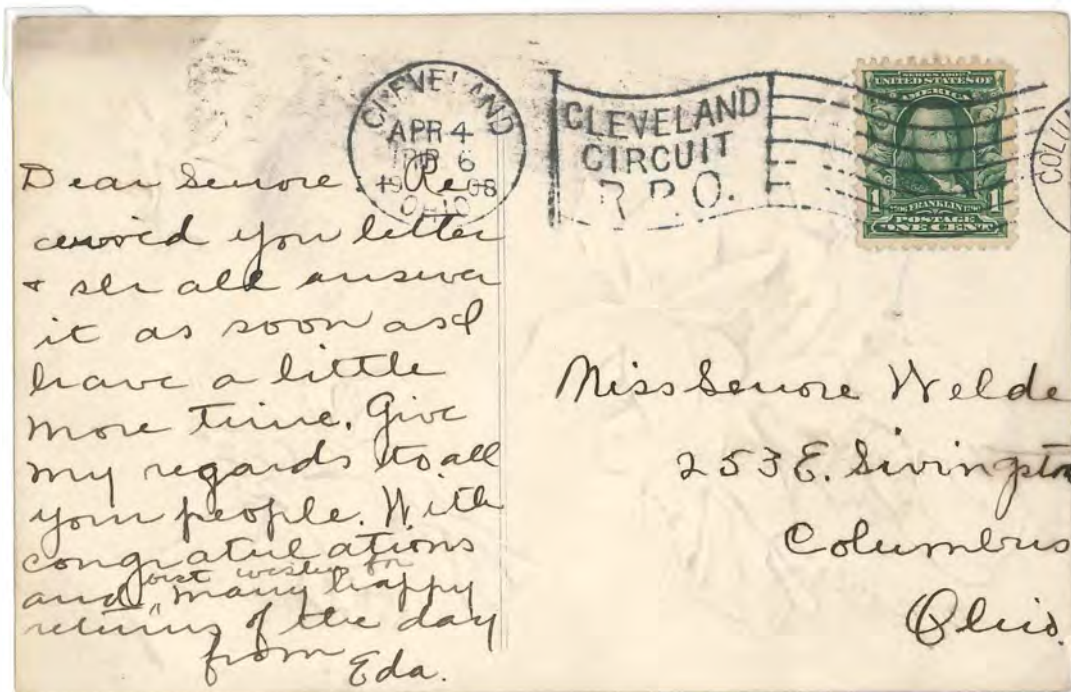 CLEVELAND
APR 4
6
19 08
OHIO
CLEVELAND
CIRCUIT
R.P.O.
UNITED STATES OF
AMERICA
1 FRANKLIN 1
POSTAGE
ONE CENT
COLU
Dear Lenore. Re-
ceived you letter
+ shall answer
it as soon as I
have a little
more time. Give
my regards to all
your people. With
congratulations
best wishes for
and many happy
returns of the day
from Eda.
Miss Lenore Welde
253 E. Livingston
Columbus
Ohio.